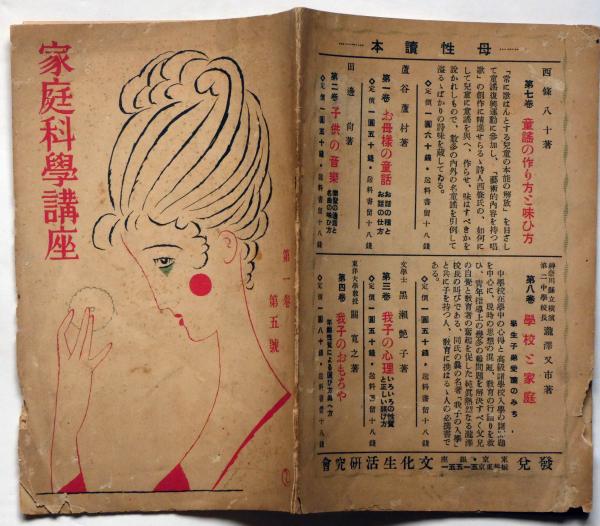 家庭科學講座
第一卷
第五號
母性讀本
西條八十著
第七卷 童謠の作り方と味ひ方
「常に歌はんとする兒童の本能の解放」を目ざし
て童謠復興運動に參加し、「藝術的內容を持つ唱
歌」の創作に精進せらるゝ詩人西條氏の、如何に
して兒童に童謠を與へ、作らせ、味はすべきかを
說かれしもので、數多の內外の名童謠を引例して
溢るゝばかりの詩味を藏してゐる。
◇定價一圓六十錢・送料書留十八錢
蘆谷蘆村著
第一卷 お母樣の童話 お話の種と
お話の仕方
◇定價一圓五十錢・送料書留十八錢
田邊尙雄著
第二卷 子供の音樂
名曲の味ひ方
◇定價一圓五十錢・送料書留十八錢
神奈川縣立橫濱
第二中學校長 瀧澤又市著
第八卷 學校と家庭
學生子弟愛護のみち
中學校在學中の心得と高級諸學校入學の諸問題
を中心に、現時の思想の混亂、敎育の行詰りを救
ひ、靑年指導上の幾多の難問題を解決すべく父兄
の自覺と敎育者の奮起を促した純眞熱烈なる瀧澤
校長の叫びである。同氏の曩の名著「我子の入學」
と共に子を持つ人、敎育に携はるゝ人の必携書で
ある。
◇定價一圓六十錢・送料書留十八錢
文學士 黑瀨艷子著
第三卷 我子の心理 いろいろの性質
と正しい躾け方
◇定價一圓五十錢・送料書留十八錢
東洋大學敎授 關寬之著
第四卷 我子のおもちや
年齡性質による選び方與へ方
◇定價一圓八十錢・送料書留十八錢
發兌 東京・銀座
振替東京五一五五一 文化生活硏究會